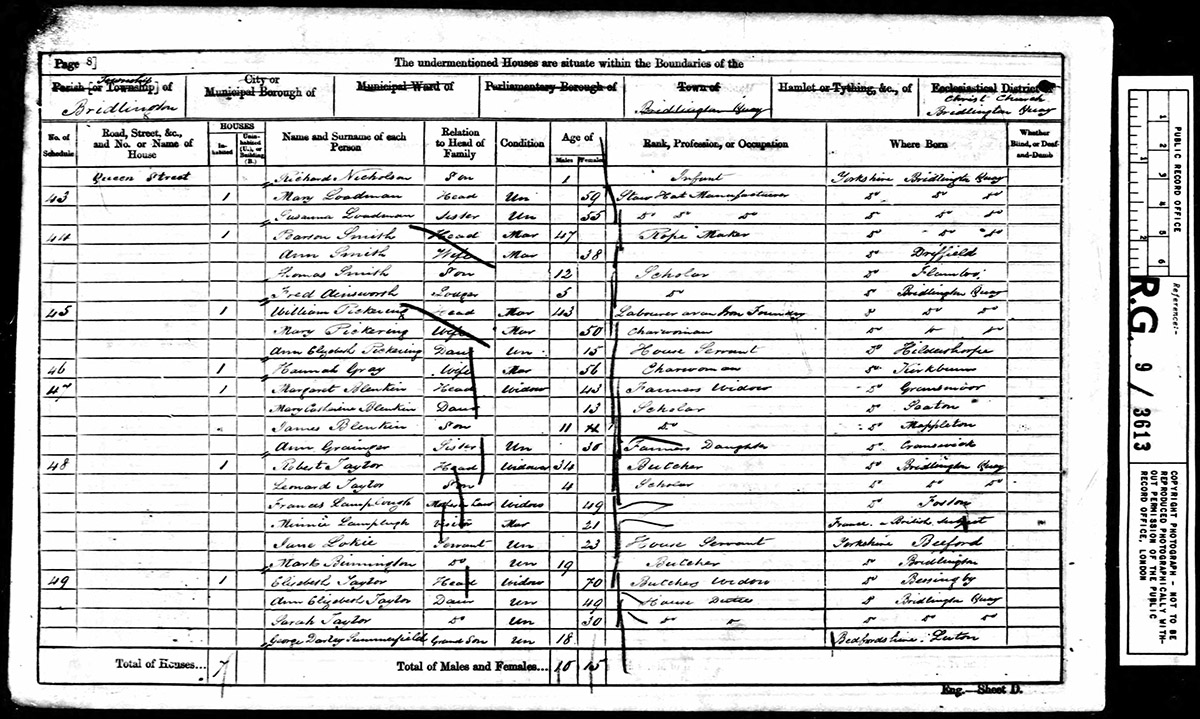 Page 8]
The undermentioned Houses are situate within the Boundaries of the
Parish [or Township] of Township
City or Municipal Borough of
Municipal Ward of
Parliamentary Borough of
Town of
Hamlet or Tything, &c., of
Ecclesiastical District of
Bridlington
Bridlington Quay
Christ Church Bridlington Quay
No. of Schedule
Road, Street, &c., and No. or Name of House
HOUSES
Inhabited
Uninhabited (U.), or Building (B.)
Name and Surname of each Person
Relation to Head of Family
Condition
Age of
Males
Females
Rank, Profession, or Occupation
Where Born
Whether Blind, or Deaf-and-Dumb
Queen Street Richard Nicholson Son 1 Infant Yorkshire Bridlington Quay
43 1 Mary Loadman Head Un 59 Straw Hat Manufacturer Do Do Do
Susanna Loadman Sister Un 55 Do Do Do Do Do Do
44 1 Pearson Smith Head Mar 47 Rope Maker Do Do Do
Ann Smith Wife Mar 38 Do Driffield
Thomas Smith Son 12 Scholar Do Flambro
Fred Ainsworth Lodger 5 Do Do Bridlington Quay
45 1 William Pickering Head Mar 43 Labourer at an Iron Foundry Do Do Do
Mary Pickering Wife Mar 50 Charwoman Do Do Do
Ann Elizabeth Pickering Daur Un 15 House Servant Do Hilderthorpe
46 1 Hannah Gray Wife Mar 56 Charwoman Do Kirkburn
47 1 Margaret Blenkin Head Widow 43 Farmers Widow Do Gransmoor
Mary Catharine Blenkin Daur 13 Scholar Do
James Blenkin Son 11 Do Do Mappleton
Ann Grainger Sister Un 30 Farmers Daughter Do Cranswick
48 1 Robert Taylor Head Widower 34 Butcher Do Bridlington Quay
Leonard Taylor Son 4 Scholar Do Do Do
Frances Lamplough Mother in Law Widow 49 Do Foston
Minnie Lamplugh Visitor Mar 21 France - British Subject
Jane Lokie Servant Un 23 House Servant Yorkshire Beeford
Mark Binnington Do Un 19 Butcher Do Bridlington
49 1 Elizabeth Taylor Head Widow 70 Butchers Widow Do Bessingby
Ann Elizabeth Taylor Daur Un 49 House Duties Do Bridlington Quay
Sarah Taylor Do Un 30 Do Do Do Do Do
George Darley Summerfield Grand Son Un 18 Bedfordshire Luton
Total of Houses... 7 Total of Males and Females... 10 15
Eng.—Sheet D.
PUBLIC RECORD OFFICE
1 2 3 4 5 6
Reference:-
R.G. 9/3613
COPYRIGHT PHOTOGRAPH - NOT TO BE REPRODUCED PHOTOGRAPHICALLY WITHOUT PERMISSION OF THE PUBLIC RECORD OFFICE, LONDON